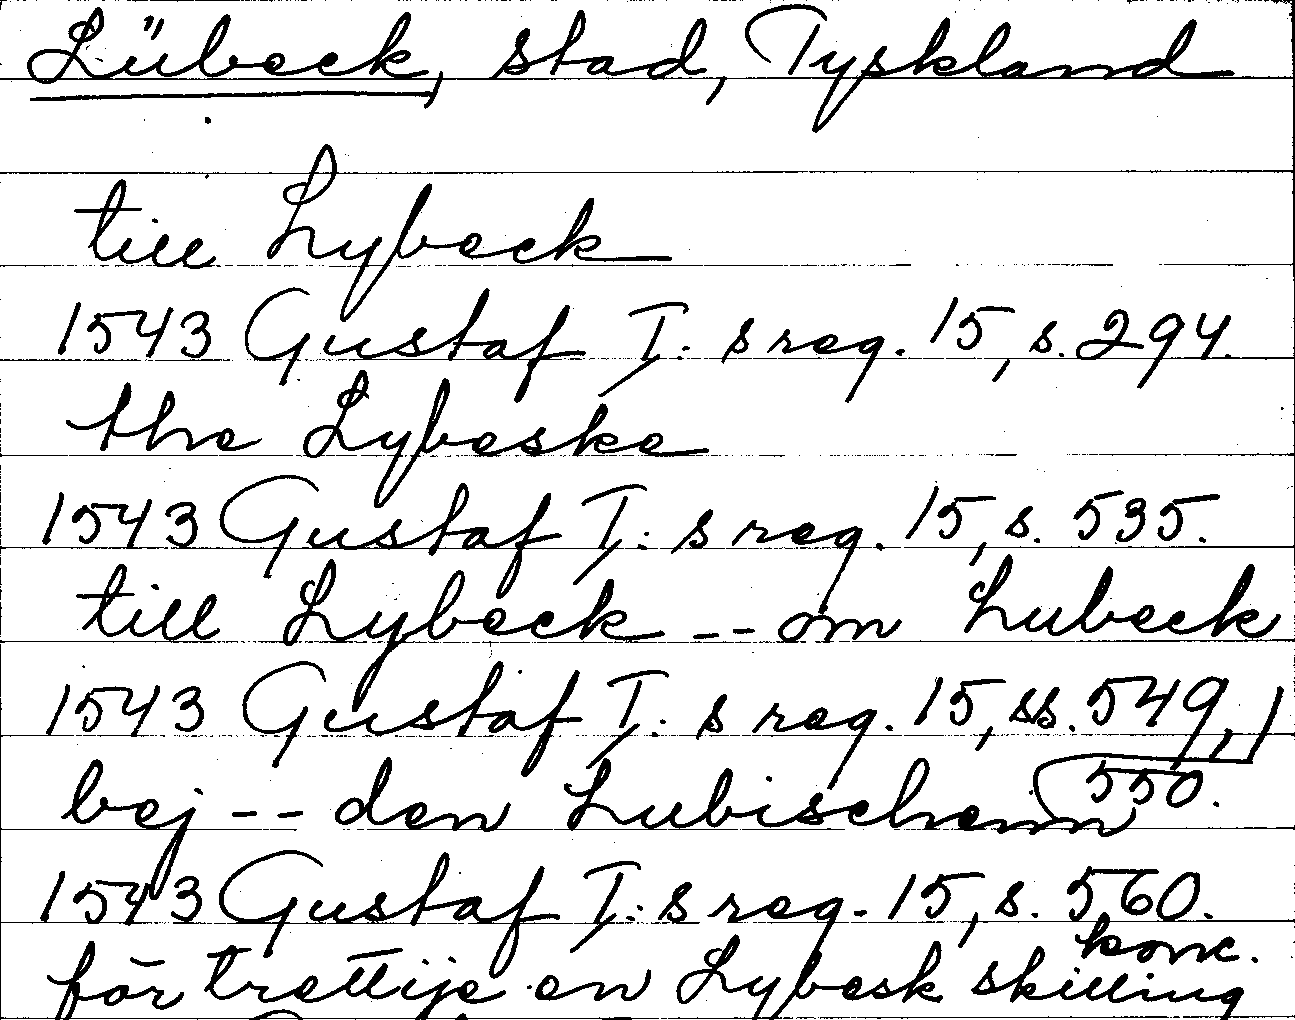 Lübeck, stad, Tyskland
till Lybeck
1543 Gustaf I:s reg. 15, s. 294.
the Lybeske
1543 Gustaf I:s reg. 15, s. 535.
till Lybeck -- om Lubeck
1543 Gustaf I:s reg. 15, ss. 549,
550.
bej -- den Lubischenn
1543 Gustaf I:s reg. 15, s. 560.
konc.
för trettije en Lybesk skilling